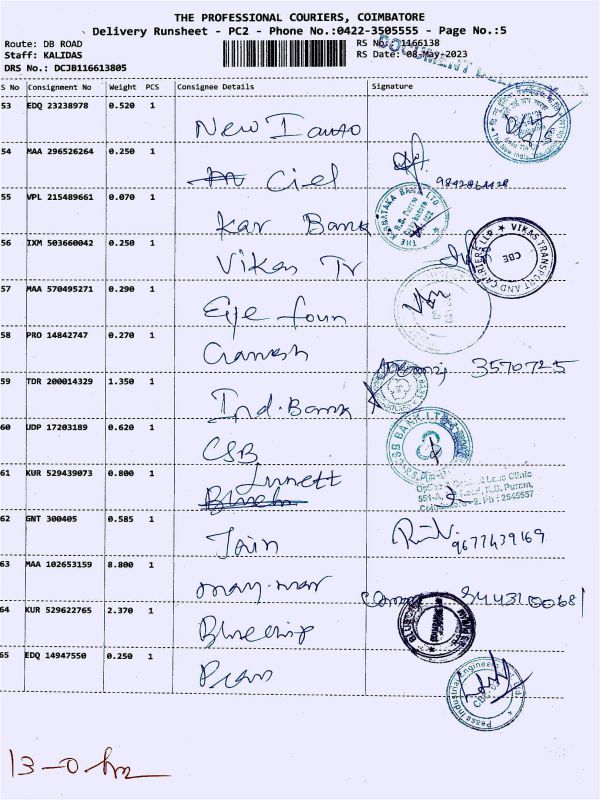 THE PROFESSIONAL COURIERS, COIMBATORE
Delivery Runsheet - PC2 - Phone No.:0422-3505555 - Page No.:5
Route: DB ROAD
RS No.: 1166138
Staff: KALIDAS
RS Date: 08-May-2023
DRS No.: DCJB116613805
S No Consignment No Weight PCS Consignee Details Signature
53 EDQ 23238978 0.520 1 New
54 MAA 296526264 0.250 1 Ciel
9842864428
55 VPL 215489661 0.070 1 Kar Bank
THE KARNATAKA BANK LTD.
56 IXM 503660042 0.250 1 Vikas Tr
VIKAS TRANSPORT AND CARRIERS LLP
CBE
57 MAA 570495271 0.290 1 Eye foun
58 PRO 14842747 0.270 1 Ganesh
3570725
59 TDR 200014329 1.350 1 Ind. Bank
60 UDP 17203189 0.620 1 CSB
CSB BANK LTD
61 KUR 529439073 0.800 1
62 GNT 300405 0.585 1 Jain
9677439169
63 MAA 102653159 8.800 1
64 KUR 529622765 2.370 1 Bluechip
65 EDQ 14947550 0.250 1
13-0 hrs